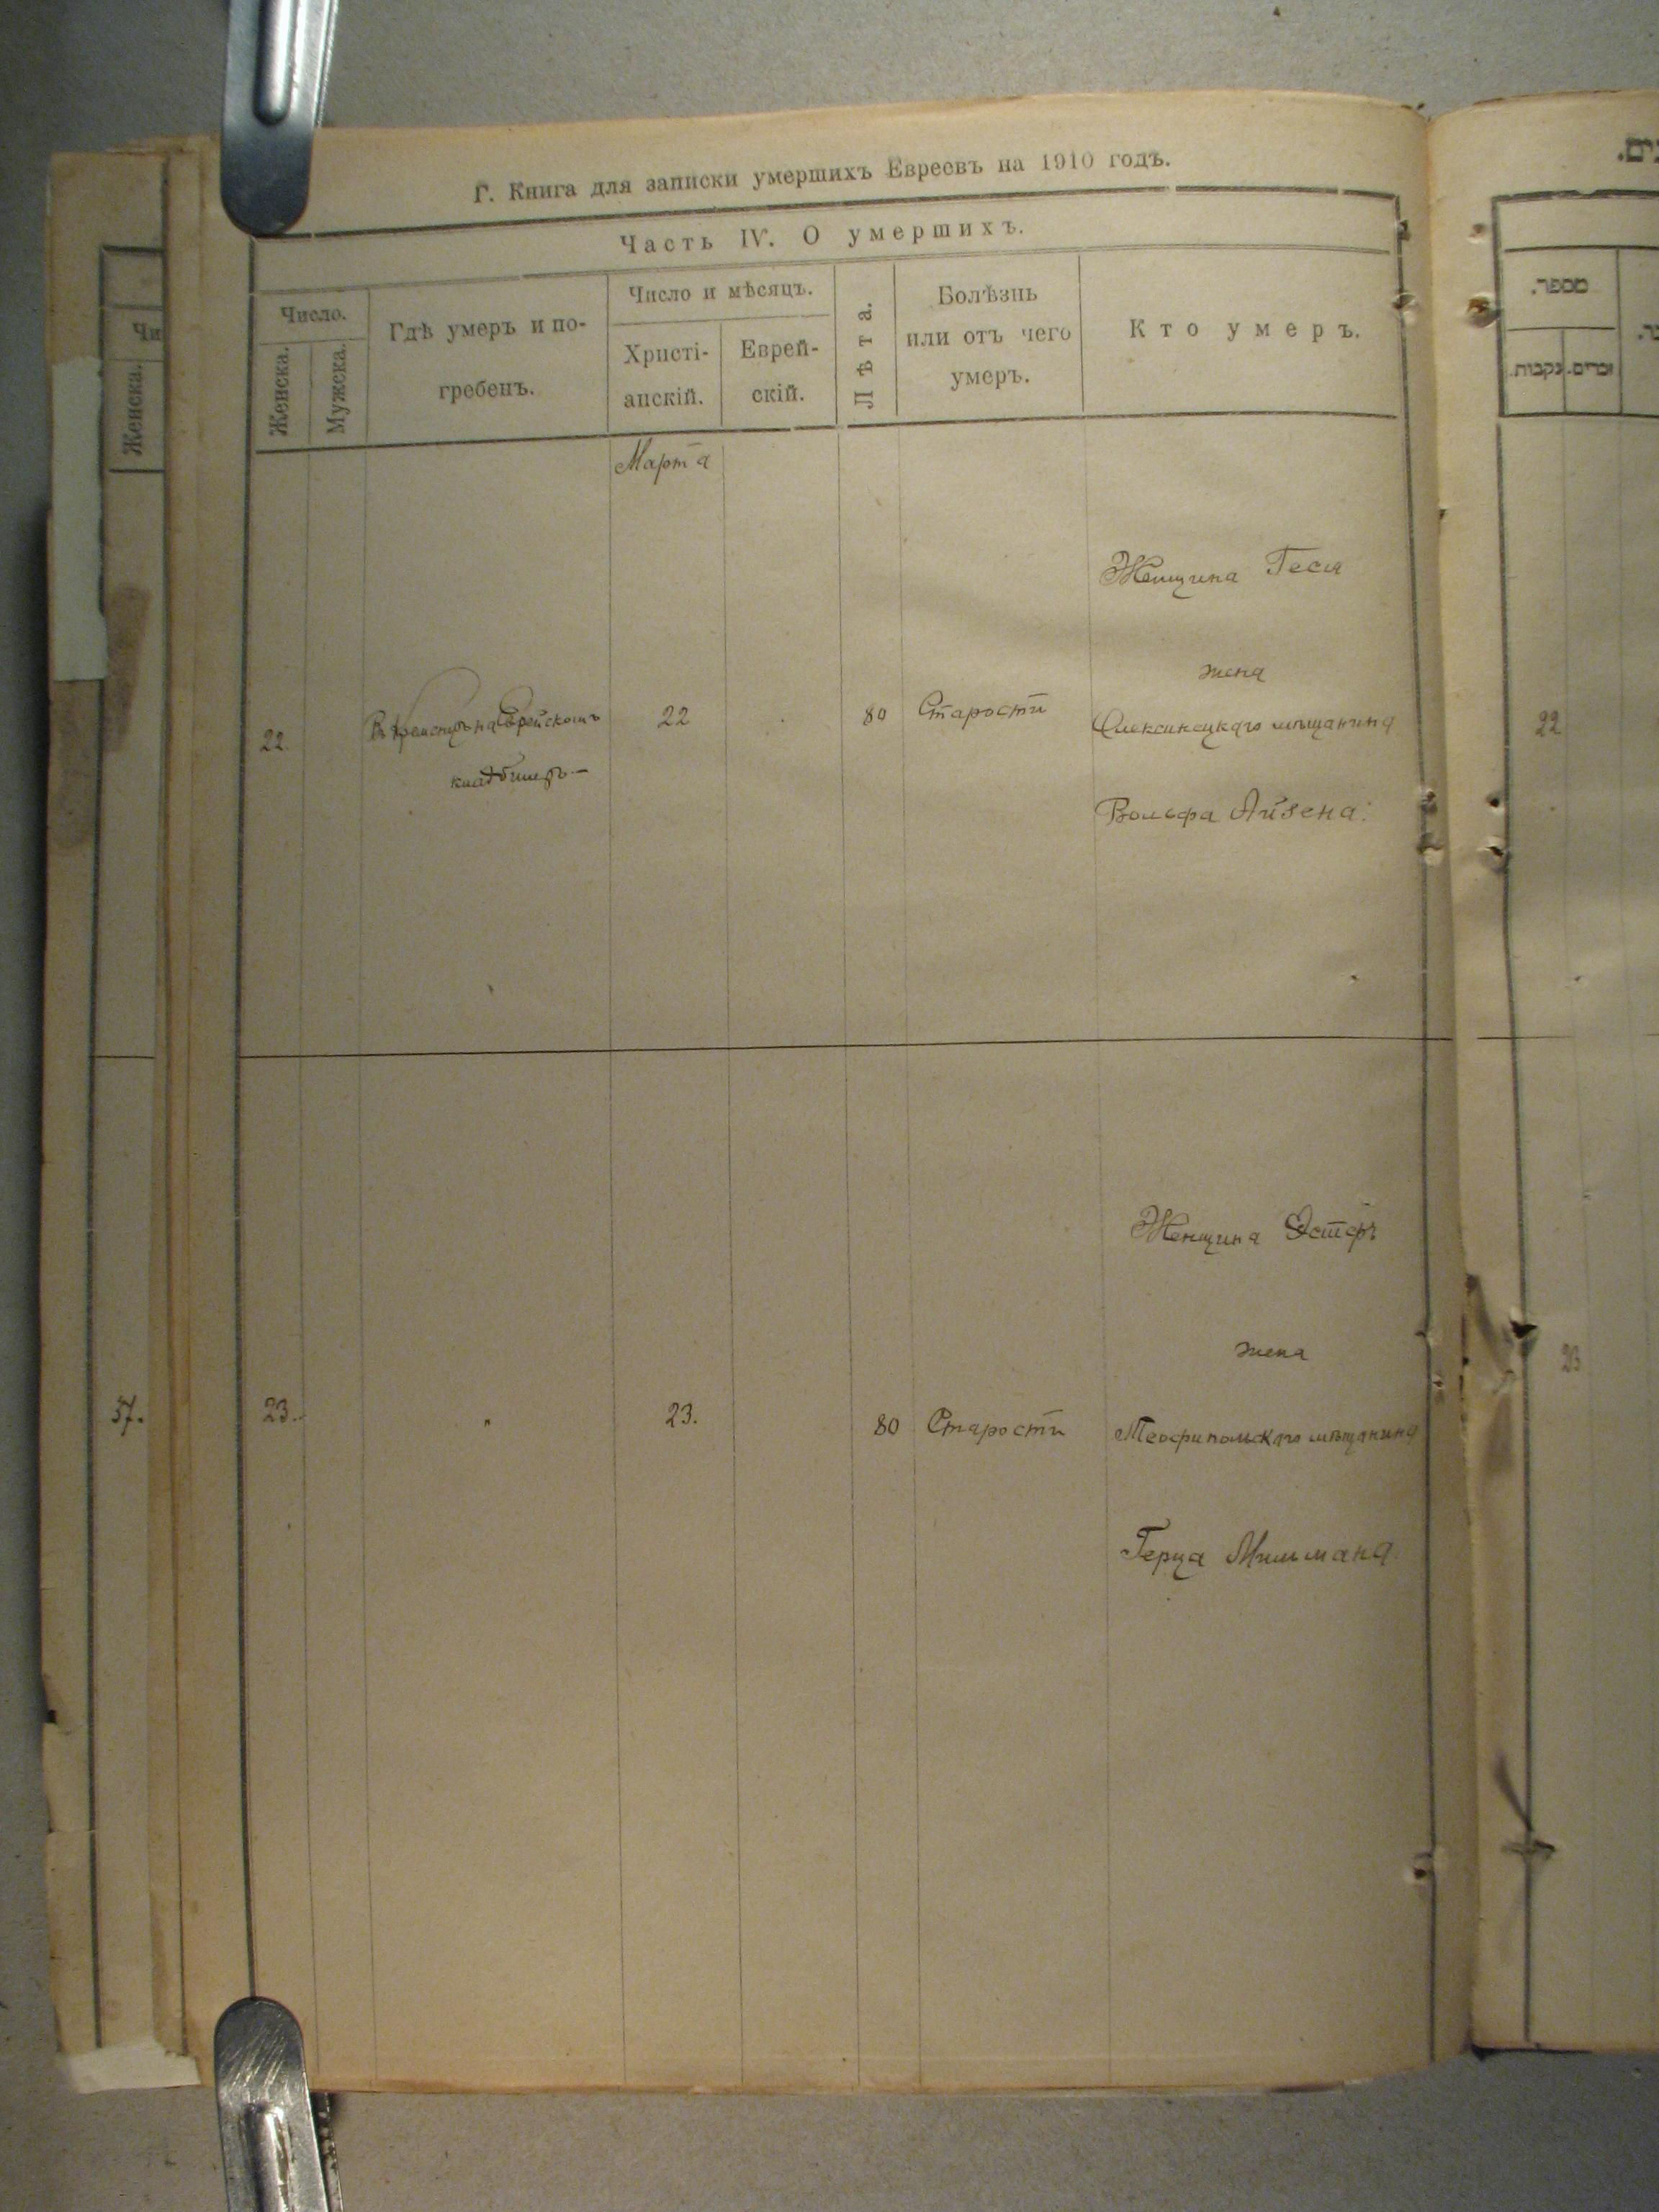 Г. Книга для записки умершихъ Евреевъ на 1910 годъ.
Часть IV. О умершихъ.
Число.
Женска.
Мужска.
Гдѣ умеръ и по-
гребенъ.
Число и мѣсяцъ.
Христі-
анскій.
Еврей-
скій.
Лѣта.
Болѣзнь
или отъ чего
умеръ.
Кто умеръ.
Марта
22
на Еврейскомъ
кладбищѣ
22
80
Старости
Женщина Геся
жена
мѣщанина
Вольфа Айзена.
23.
"
23.
80
Старости
Женщина Эстеръ
жена
Теофипольскаго мѣщанина
Герца
Чи
Женска.
37.
מספר.
נקבות.
זכרים.
22
23